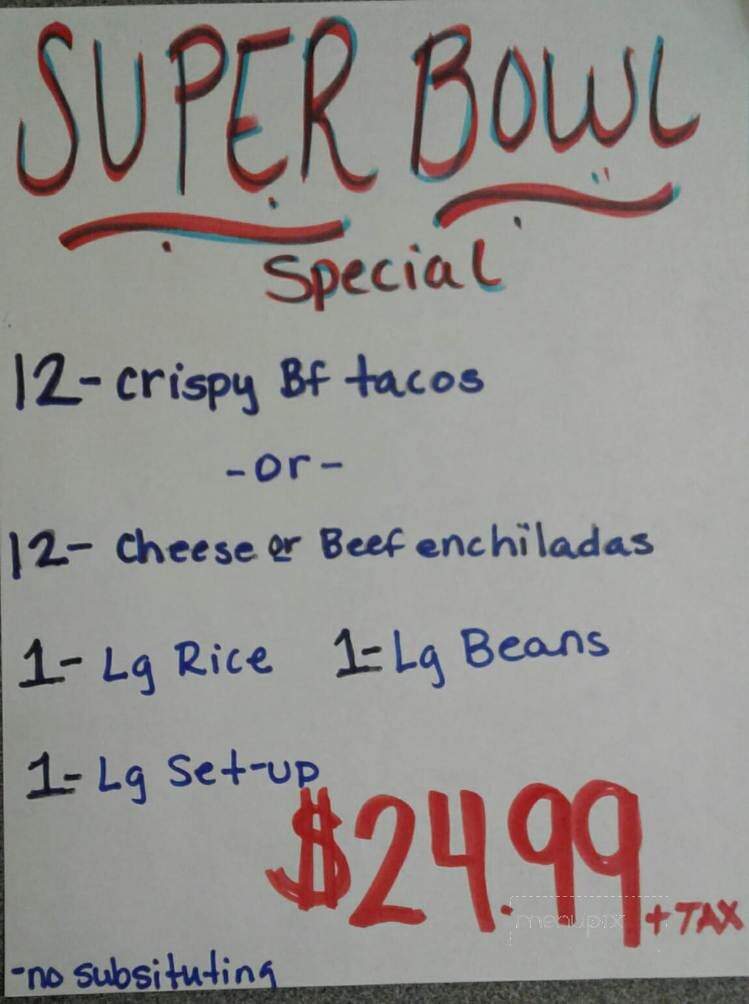 SUPER BOWL
Special
12- crispy Bf tacos
-or-
12- Cheese or Beef enchiladas
1- Lg Rice 1- Lg Beans
1- Lg Set-up
$24.99 + TAX
menupix
-no subsituting